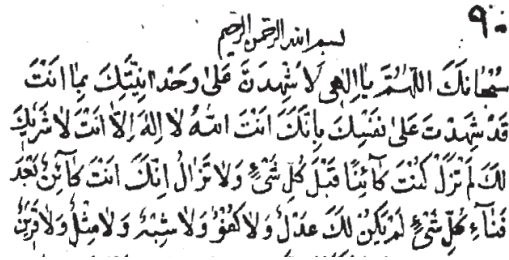 ٩٠
بسم الله الرحمن الرحيم
سُبْحَانَكَ اللّٰهُمَّ يَا اِلٰهى لَاَشْهِدَنَّ عَلىٰ وَحْدَانِيَّتِكَ بِمَا اَنْتَ
قَدْ شَهِدْتَ عَلىٰ نَفْسِكَ بِاَنَّكَ اَنْتَ اللهُ لَا اِلهَ اِلَّا اَنْتَ لَا شَرِيكَ
لَكَ لَمْ تَزَلْ كُنْتَ كَآئِنًا قَبْلَ كُلِّ شَىْءٍ وَلَا تَزَالُ اِنَّكَ اَنْتَ كَآئِنٌ بَعْدَ
فَنَآءِ كُلِّ شَىْءٍ لَمْ يَكُنْ لَكَ عَدْلٌ وَلَا كَفْوٌ وَلَا شِبْهٌ وَلَا مِثْلٌ وَلَا قَرِينٌ